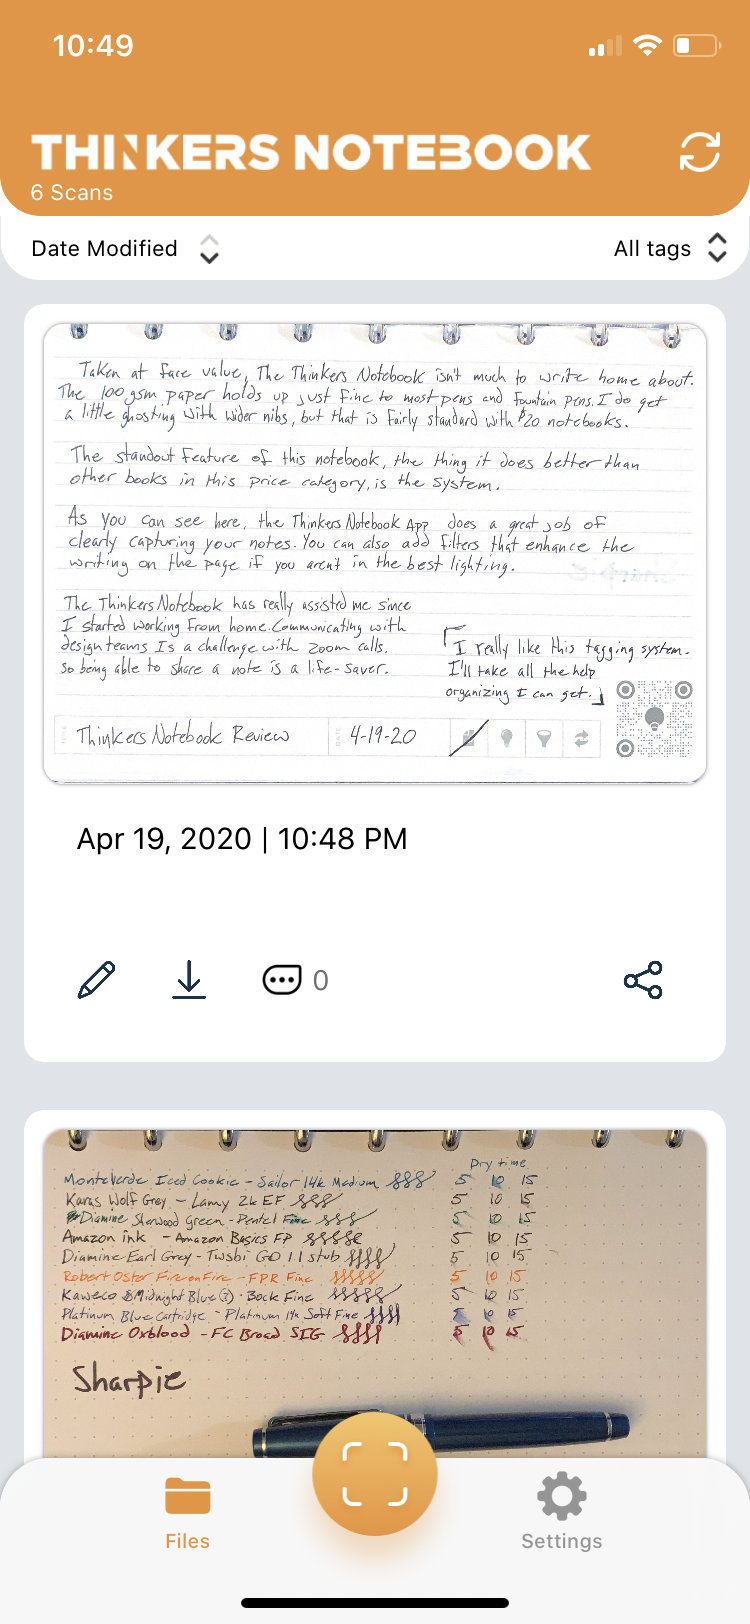 10:49
THINKERS NOTEBOOK
6 Scans
Date Modified
All tags
Taken at face value, The Thinkers Notebook isn't much to write home about.
The 100gsm paper holds up just fine to most pens and fountain pens. I do get
a little ghosting with wider nibs, but that is fairly standard with $20 notebooks.
The standout feature of this notebook, the thing it does better than
other books in this price category, is the system.
As you can see here, the Thinkers Notebook App does a great job of
clearly capturing your notes. You can also add filters that enhance the
writing on the page if you aren't in the best lighting.
The Thinkers Notebook has really assisted me since
I started working from home. Communicating with
design teams Is a challenge with zoom calls.
So being able to share a note is a life-saver.
I really like this tagging system.
I'll take all the help
organizing I can get.
TITLE
Thinkers Notebook Review
DATE
4-19-20
Apr 19, 2020 | 10:48 PM
0
Dry time
Monteverde Iced Cookie - Sailor 14k Medium 5 10 15
Karas Wolf Grey - Lamy 2k EF 5 10 15
Diamine Sherwood Green - Pentel Fine 5 10 15
Amazon ink - Amazon Basics FP 5 10 15
Diamine Earl Grey - Twsbi GO 1.1 stub 5 10 15
Robert Oster Fire on Fire - FPR Fine 5 10 15
Kaweco Midnight Blue (?) - Bock Fine 5 10 15
Platinum Blue Cartridge - Platinum 14k Soft Fine 5 10 15
Diamine Oxblood - FC Broad SIG 5 10 15
Sharpie
Files
Settings